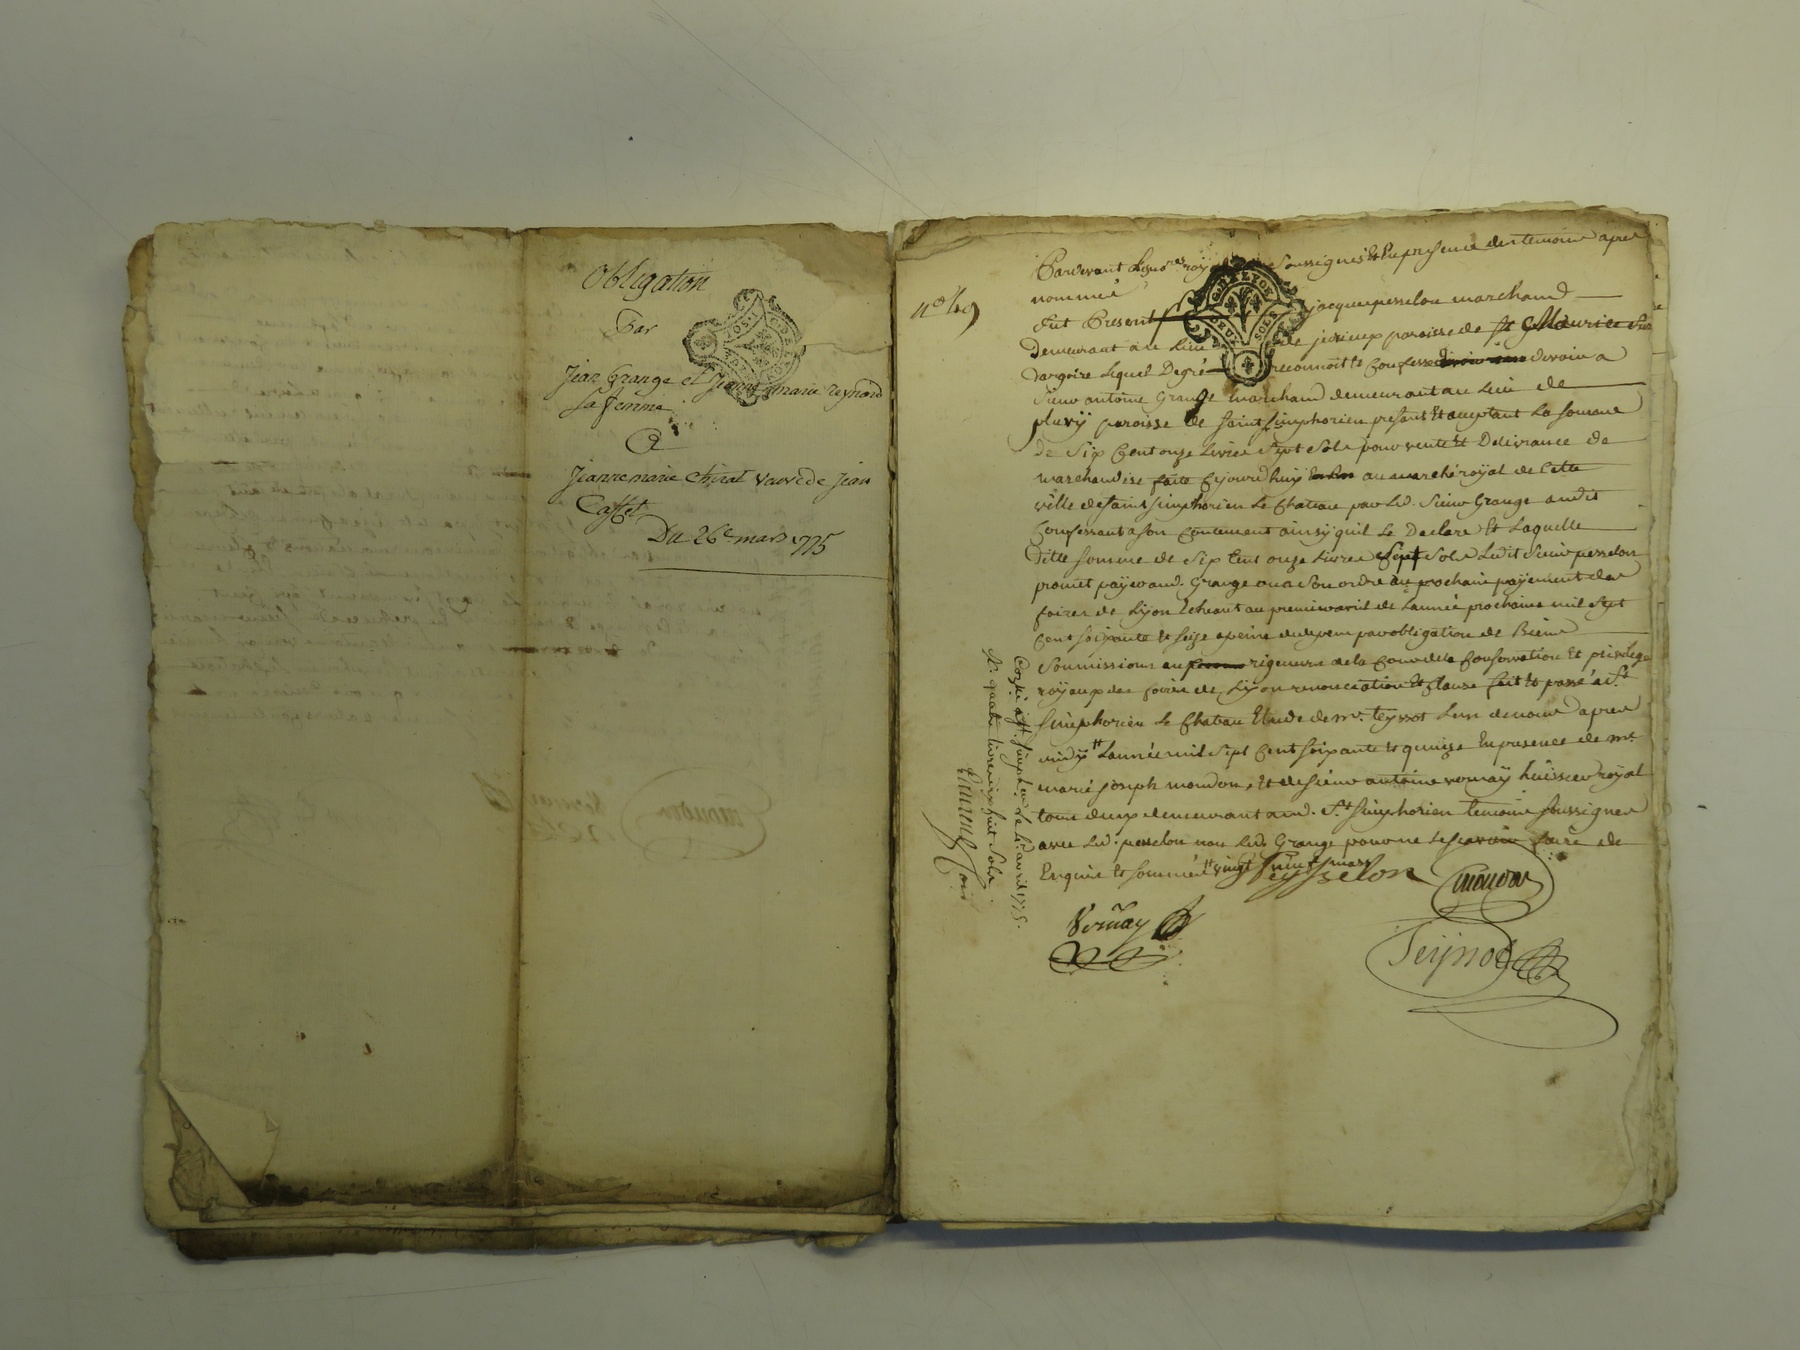 Obligation
Par
Jean Grange et Jeanne marie reynard
Sa femme
A
Jeanne marie Chirat veuve de Jean
Du 26e mars 1775
n° 49
Pardevant Le nores royal Soussignés Et En presence des temoins apres
nommés
GN. LYON
DEUX SOLS
fut Present jacques peyselon marchand
Demeurant au Lieu de paroisse de St Maurice Sur
dargoire Lequel De gré reconnoit Et Confesse devoir a
Sieur antoine Grange marchand demeurant au Lieu de
pluvÿ paroisse de Saint Simphorien present Et aceptant La Somme
de Six Cent onze Livres Sept Sols pour vente Et Delivrance de
marchandise faite Cejourdhuy au marché royal de Cette
ville de Saint Simphorien Le Chateau par Led. Sieur Grange audit
Confessant a Son Contement ainsy quil Le Declare Et Laquelle
ditte Somme de Six Cent onze Livres Sept Sols Ledit Sieur peyselon
promet payer aud. Grange ou a Son ordre au prochain payement des
foires de Lÿon Echeant au premier avril de Lannée prochaine mil Sept
Cent Soixante Et Seize a peine de depens par obligation de Biens
Soumissions au rigeurs de la Cour de la Conservation Et privilege
royaux des foires de Lÿon renonciation Et Clause fait Et passé a St
Simphorien Le Chateau Etude de me. teyssot Lun de nous apres
midy Lannée mil Sept Cent Soixante Et quinze En presence de me
marie joseph moudon, Et de Sieur antoine vernaÿ huissier royal
tous deux demeurant aud. St Simphorien temoins Soussignes
avec Led. peyselon non Led. Grange pour ne Le Scavoir faire de
Enquis Et Sommé vingt mars
Peysselon
moudon
Vernay
Conslé a St. Simphorien Le 4e avril 1775.
R. quatre livres dix huit Sols